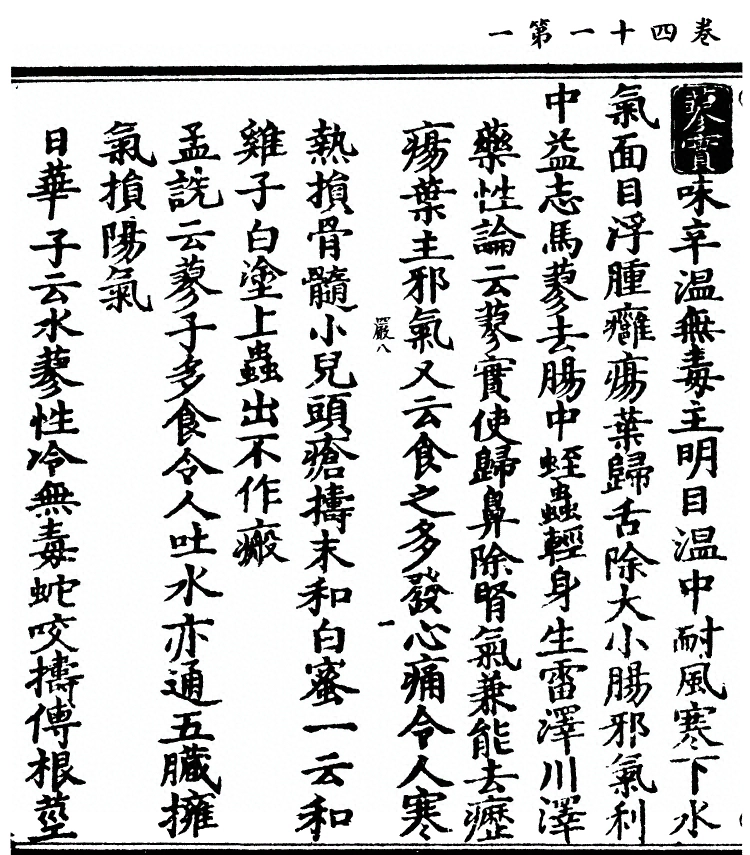 卷四十一第一
蓼實味辛温無毒主明目温中耐風寒下水
氣面目浮腫癰瘍葉歸舌除大小腸邪氣利
中益志馬蓼去腸中蛭蟲輕身生雷澤川澤
藥性論云蓼實使歸鼻除腎氣兼能去癧
瘍葉主邪氣又云食之多發心痛令人寒
嚴八
熱損骨髓小兒頭瘡擣末和白蜜一云和
雞子白塗上蟲出不作瘢
孟詵云蓼子多食令人吐水亦通五臟擁
氣損陽氣
日華子云水蓼性冷無毒蛇咬擣傅根莖